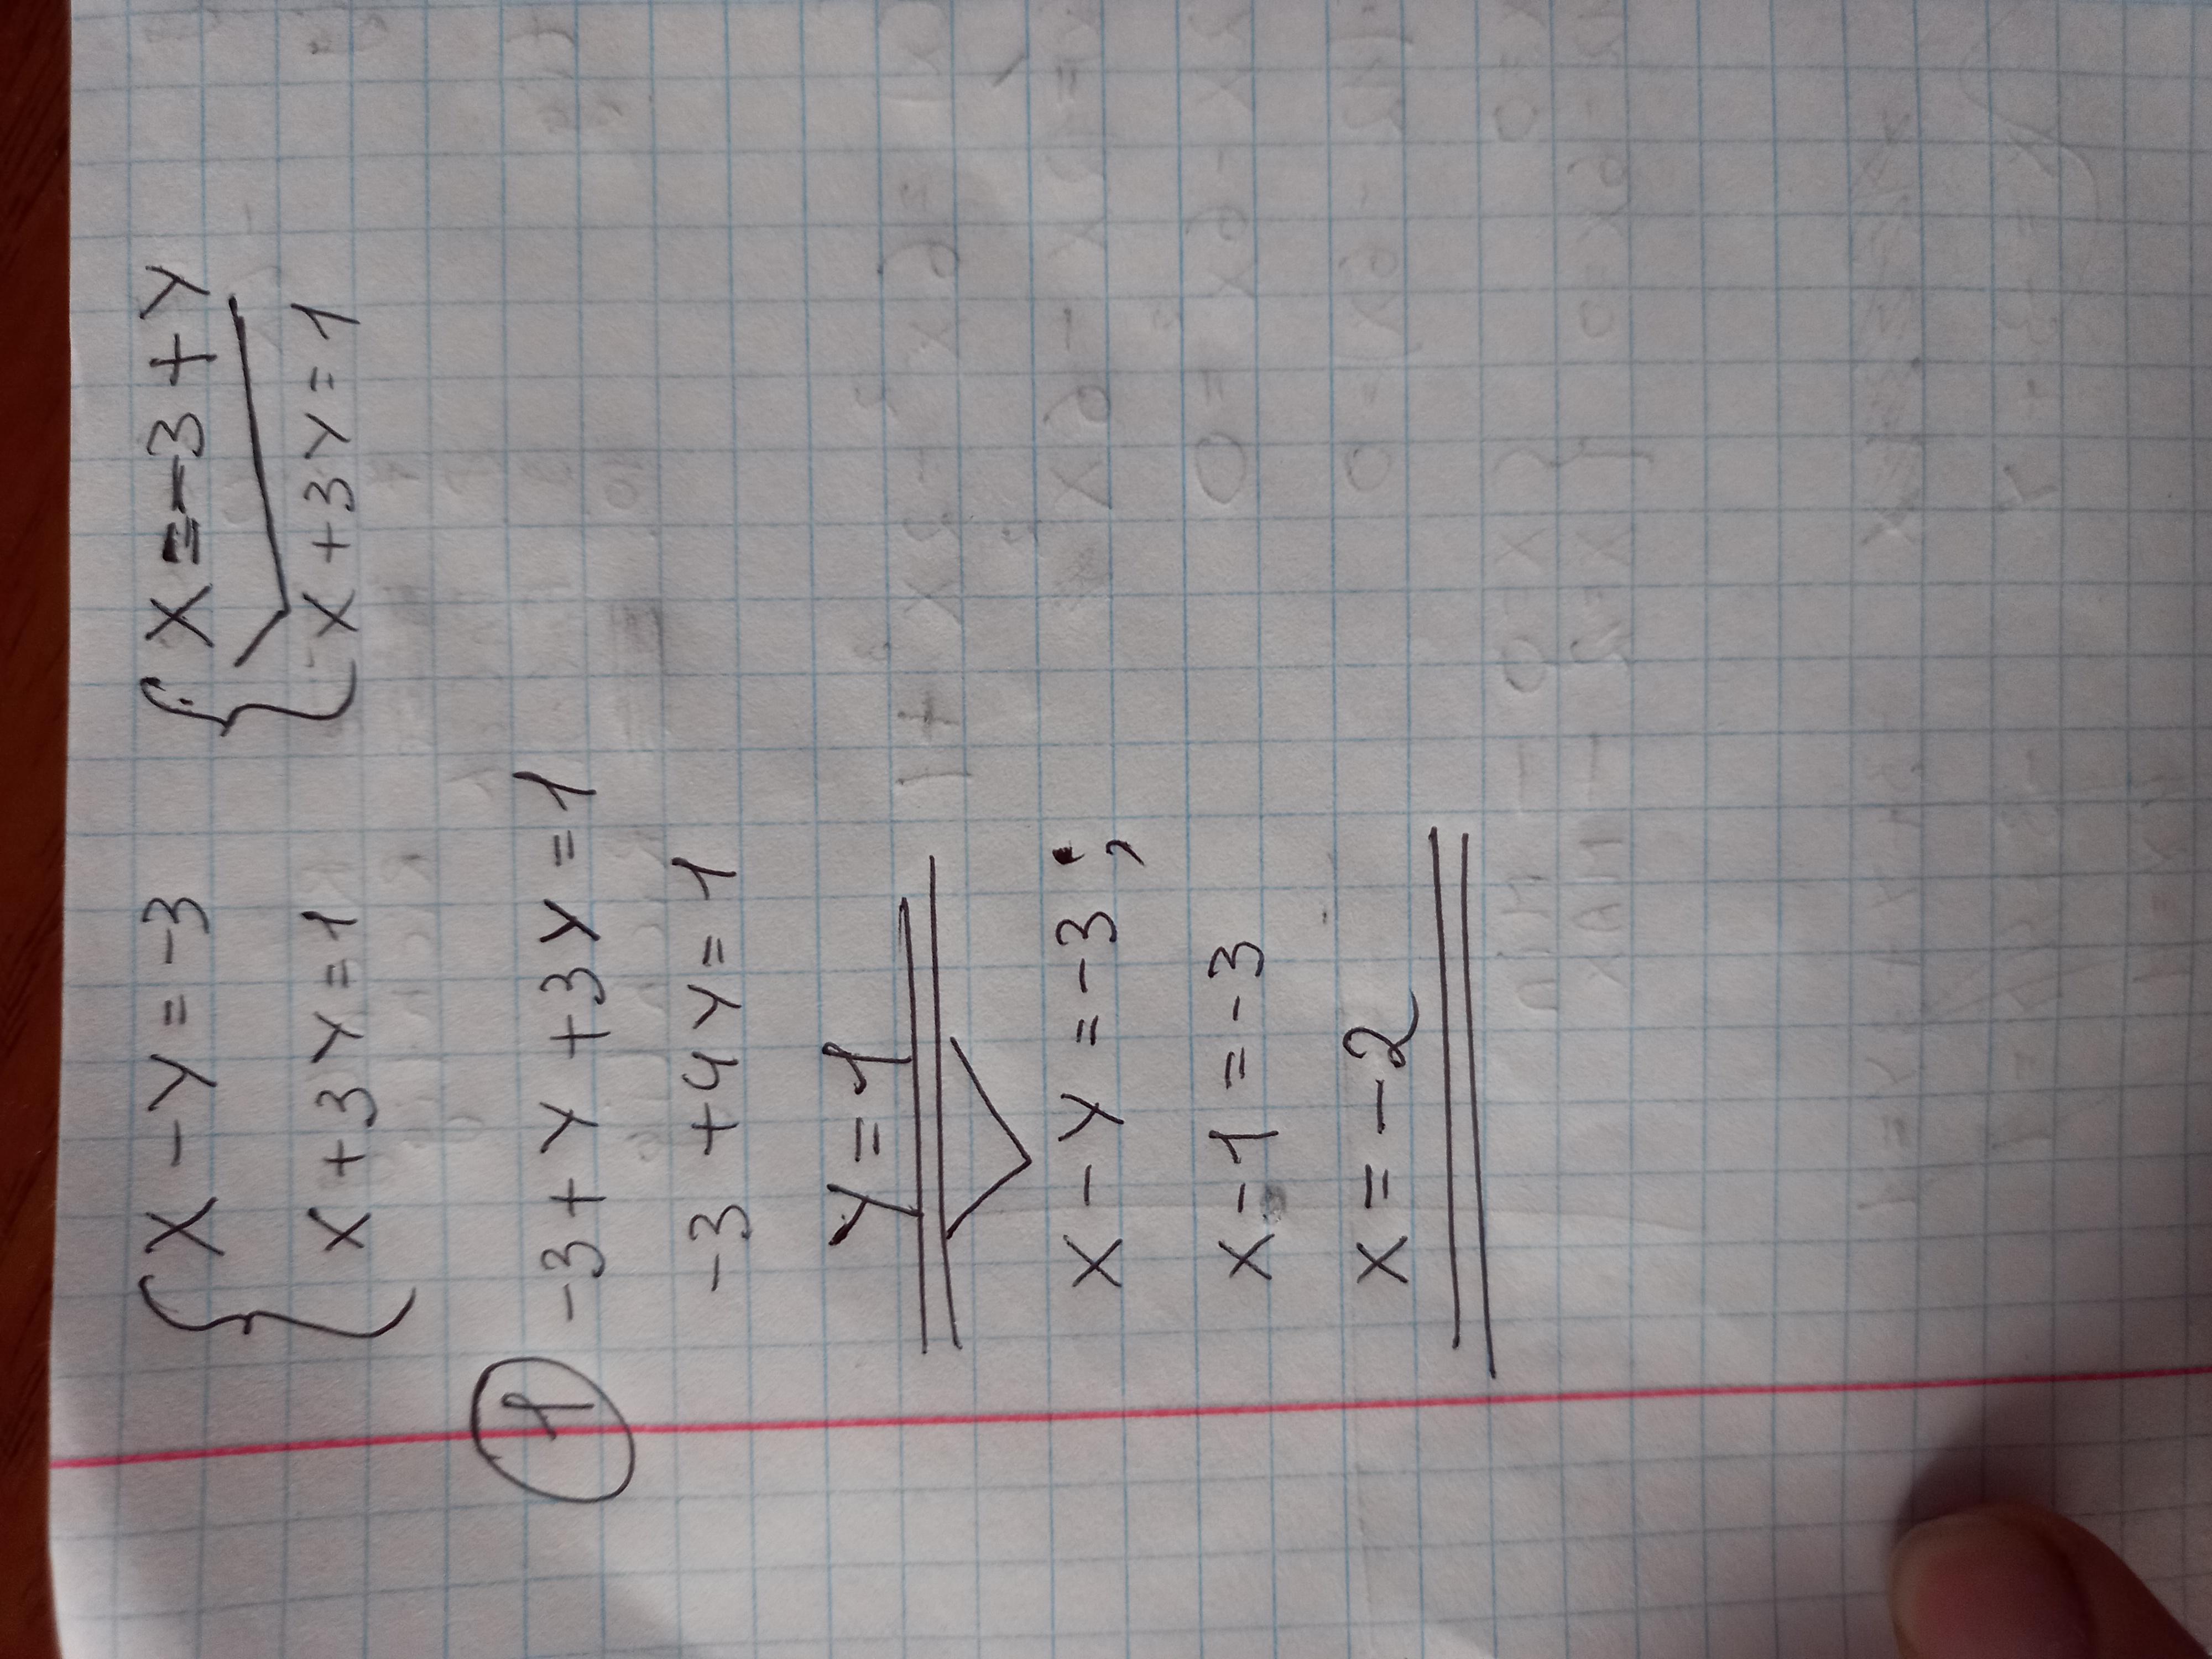 { x - y = -3 { x = -3 + y
x + 3y = 1 x + 3y = 1
1 -3 + y + 3y = 1
-3 + 4y = 1
y = 1
x - y = -3;
x - 1 = -3
x = -2